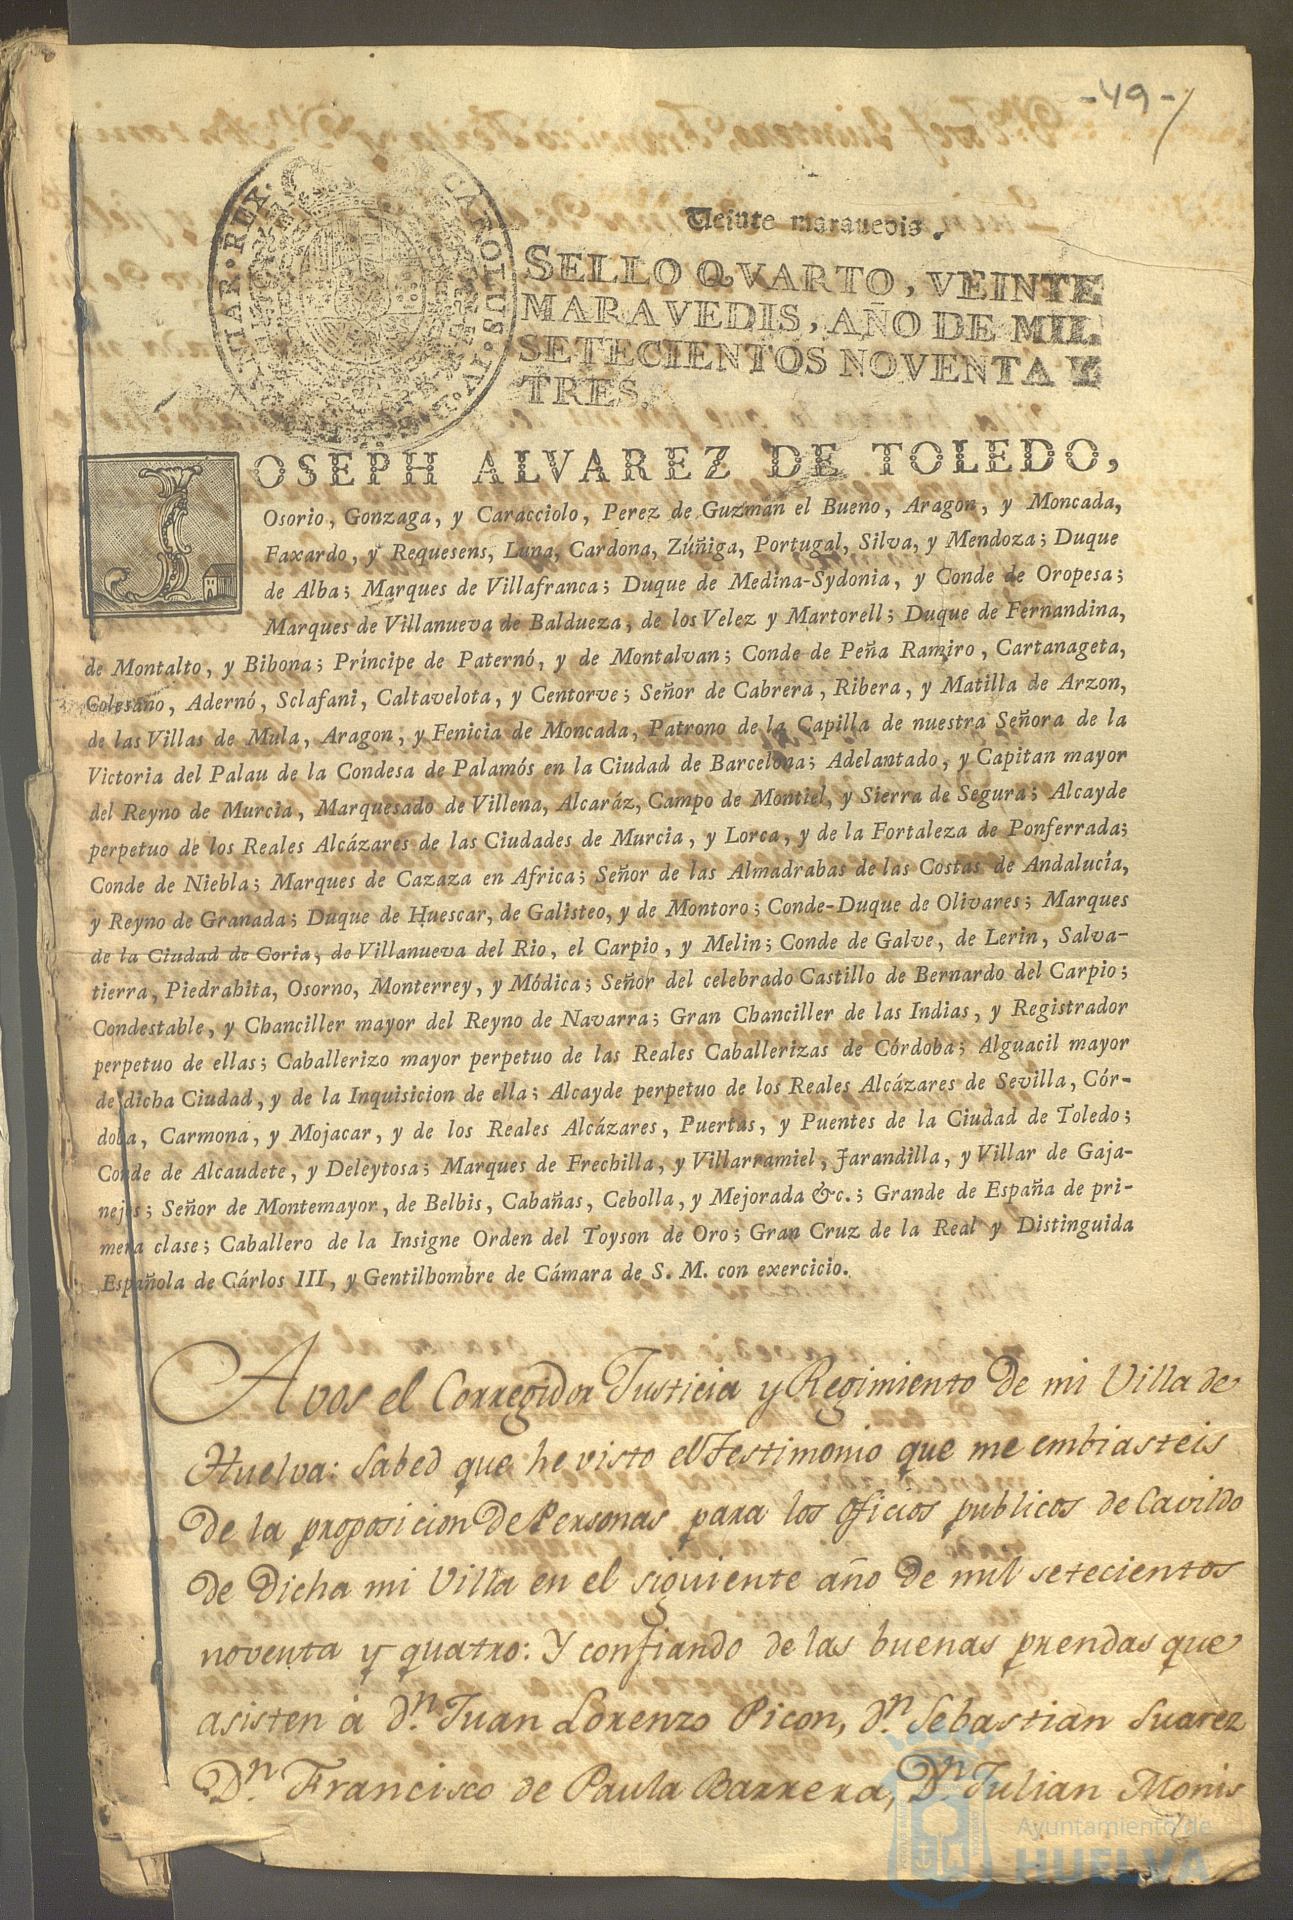 -49-
CAROLUS. IV. D. G. HISPANIAR. REX.
Veinte maravedis.
SELLO QVARTO, VEINTE
MARAVEDIS, AÑO DE MIL
SETECIENTOS NOVENTA Y
TRES.
JOSEPH ALVAREZ DE TOLEDO,
Osorio, Gonzaga, y Caracciolo, Perez de Guzmán el Bueno, Aragon, y Moncada,
Faxardo, y Requesens, Luna, Cardona, Zúñiga, Portugal, Silva, y Mendoza; Duque
de Alba; Marques de Villafranca; Duque de Medina-Sydonia, y Conde de Oropesa;
Marques de Villanueva de Baldueza, de los Velez y Martorell; Duque de Fernandina,
de Montalto, y Bibona; Príncipe de Paternó, y de Montalvan; Conde de Peña Ramiro, Cartanageta,
Golesano, Adernó, Sclafani, Caltavelota, y Centorve; Señor de Cabrera, Ribera, y Matilla de Arzon,
de las Villas de Mula, Aragon, y Fenicia de Moncada, Patrono de la Capilla de nuestra Señora de la
Victoria del Palau de la Condesa de Palamós en la Ciudad de Barcelona; Adelantado, y Capitan mayor
del Reyno de Murcia, Marquesado de Villena, Alcaráz, Campo de Montiel, y Sierra de Segura; Alcayde
perpetuo de los Reales Alcázares de las Ciudades de Murcia, y Lorca, y de la Fortaleza de Ponferrada;
Conde de Niebla; Marques de Cazaza en Africa; Señor de las Almadrabas de las Costas de Andalucía,
y Reyno de Granada; Duque de Huescar, de Galisteo, y de Montoro; Conde-Duque de Olivares; Marques
de la Ciudad de Coria, de Villanueva del Rio, el Carpio, y Melin; Conde de Galve, de Lerin, Salva-
tierra, Piedrahita, Osorno, Monterrey, y Módica; Señor del celebrado Castillo de Bernardo del Carpio;
Condestable, y Chanciller mayor del Reyno de Navarra; Gran Chanciller de las Indias, y Registrador
perpetuo de ellas; Caballerizo mayor perpetuo de las Reales Caballerizas de Córdoba; Alguacil mayor
de dicha Ciudad, y de la Inquisicion de ella; Alcayde perpetuo de los Reales Alcázares de Sevilla, Cór-
doba, Carmona, y Mojacar, y de los Reales Alcázares, Puertas, y Puentes de la Ciudad de Toledo;
Conde de Alcaudete, y Deleytosa; Marques de Frechilla, y Villarramiel, Jarandilla, y Villar de Gaja-
nejos; Señor de Montemayor, de Belbis, Cabañas, Cebolla, y Mejorada &c.; Grande de España de pri-
mera clase; Caballero de la Insigne Orden del Toyson de Oro; Gran Cruz de la Real y Distinguida
Española de Cárlos III, y Gentilhombre de Cámara de S. M. con exercicio.
A vos el Corregidor Justicia y Regimiento de mi Villa de
Huelva: Sabed que he visto el Testimonio que me embiasteis
de la proposicion de Personas para los oficios publicos de Cavildo
de Dicha mi Villa en el siguiente año de mil setecientos
noventa y quatro: Y confiando de las buenas prendas que
asisten á dn. Juan Lorenzo Picon, dn. Sebastian Suarez
Dn. Francisco de Paula Barrera, Dn. Julian Monis
Ayuntamiento de
HUELVA